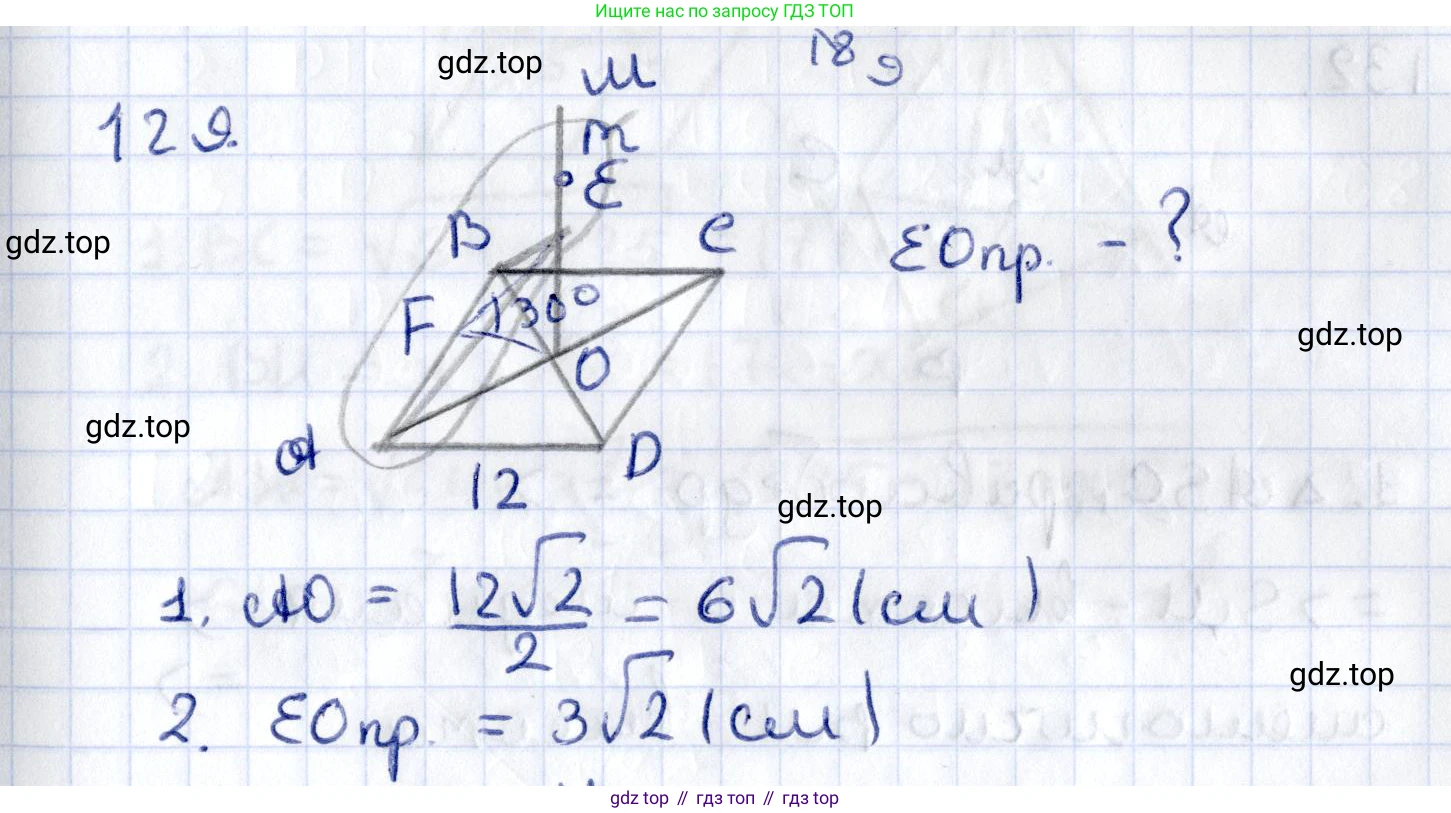 Ищите нас по запросу ГДЗ ТОП
18 9
gdz.top
M
129.
m
E
B
C
EOпр. - ?
gdz.top
F
130°
gdz.top
O
gdz.top
A
D
12
gdz.top
1. AO = 12√2/2 = 6√2 (см)
gdz.top
2. EOпр. = 3√2 (см)
gdz top // гдз топ // gdz top